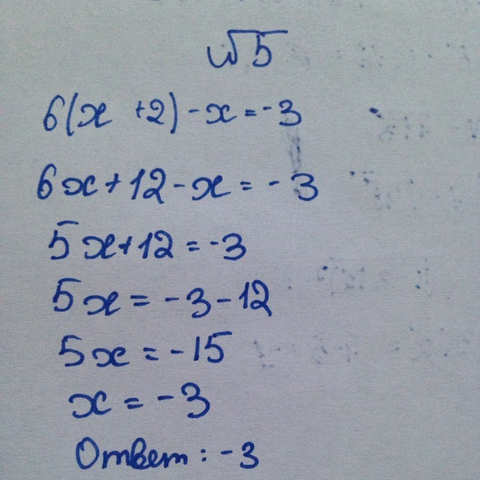 №5
6(x +2) - x = -3
6x + 12 - x = -3
5x + 12 = -3
5x = -3 - 12
5x = -15
x = -3
Ответ: -3